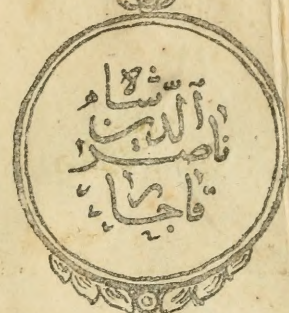 ناصر
الدّین
شاه
قاجار